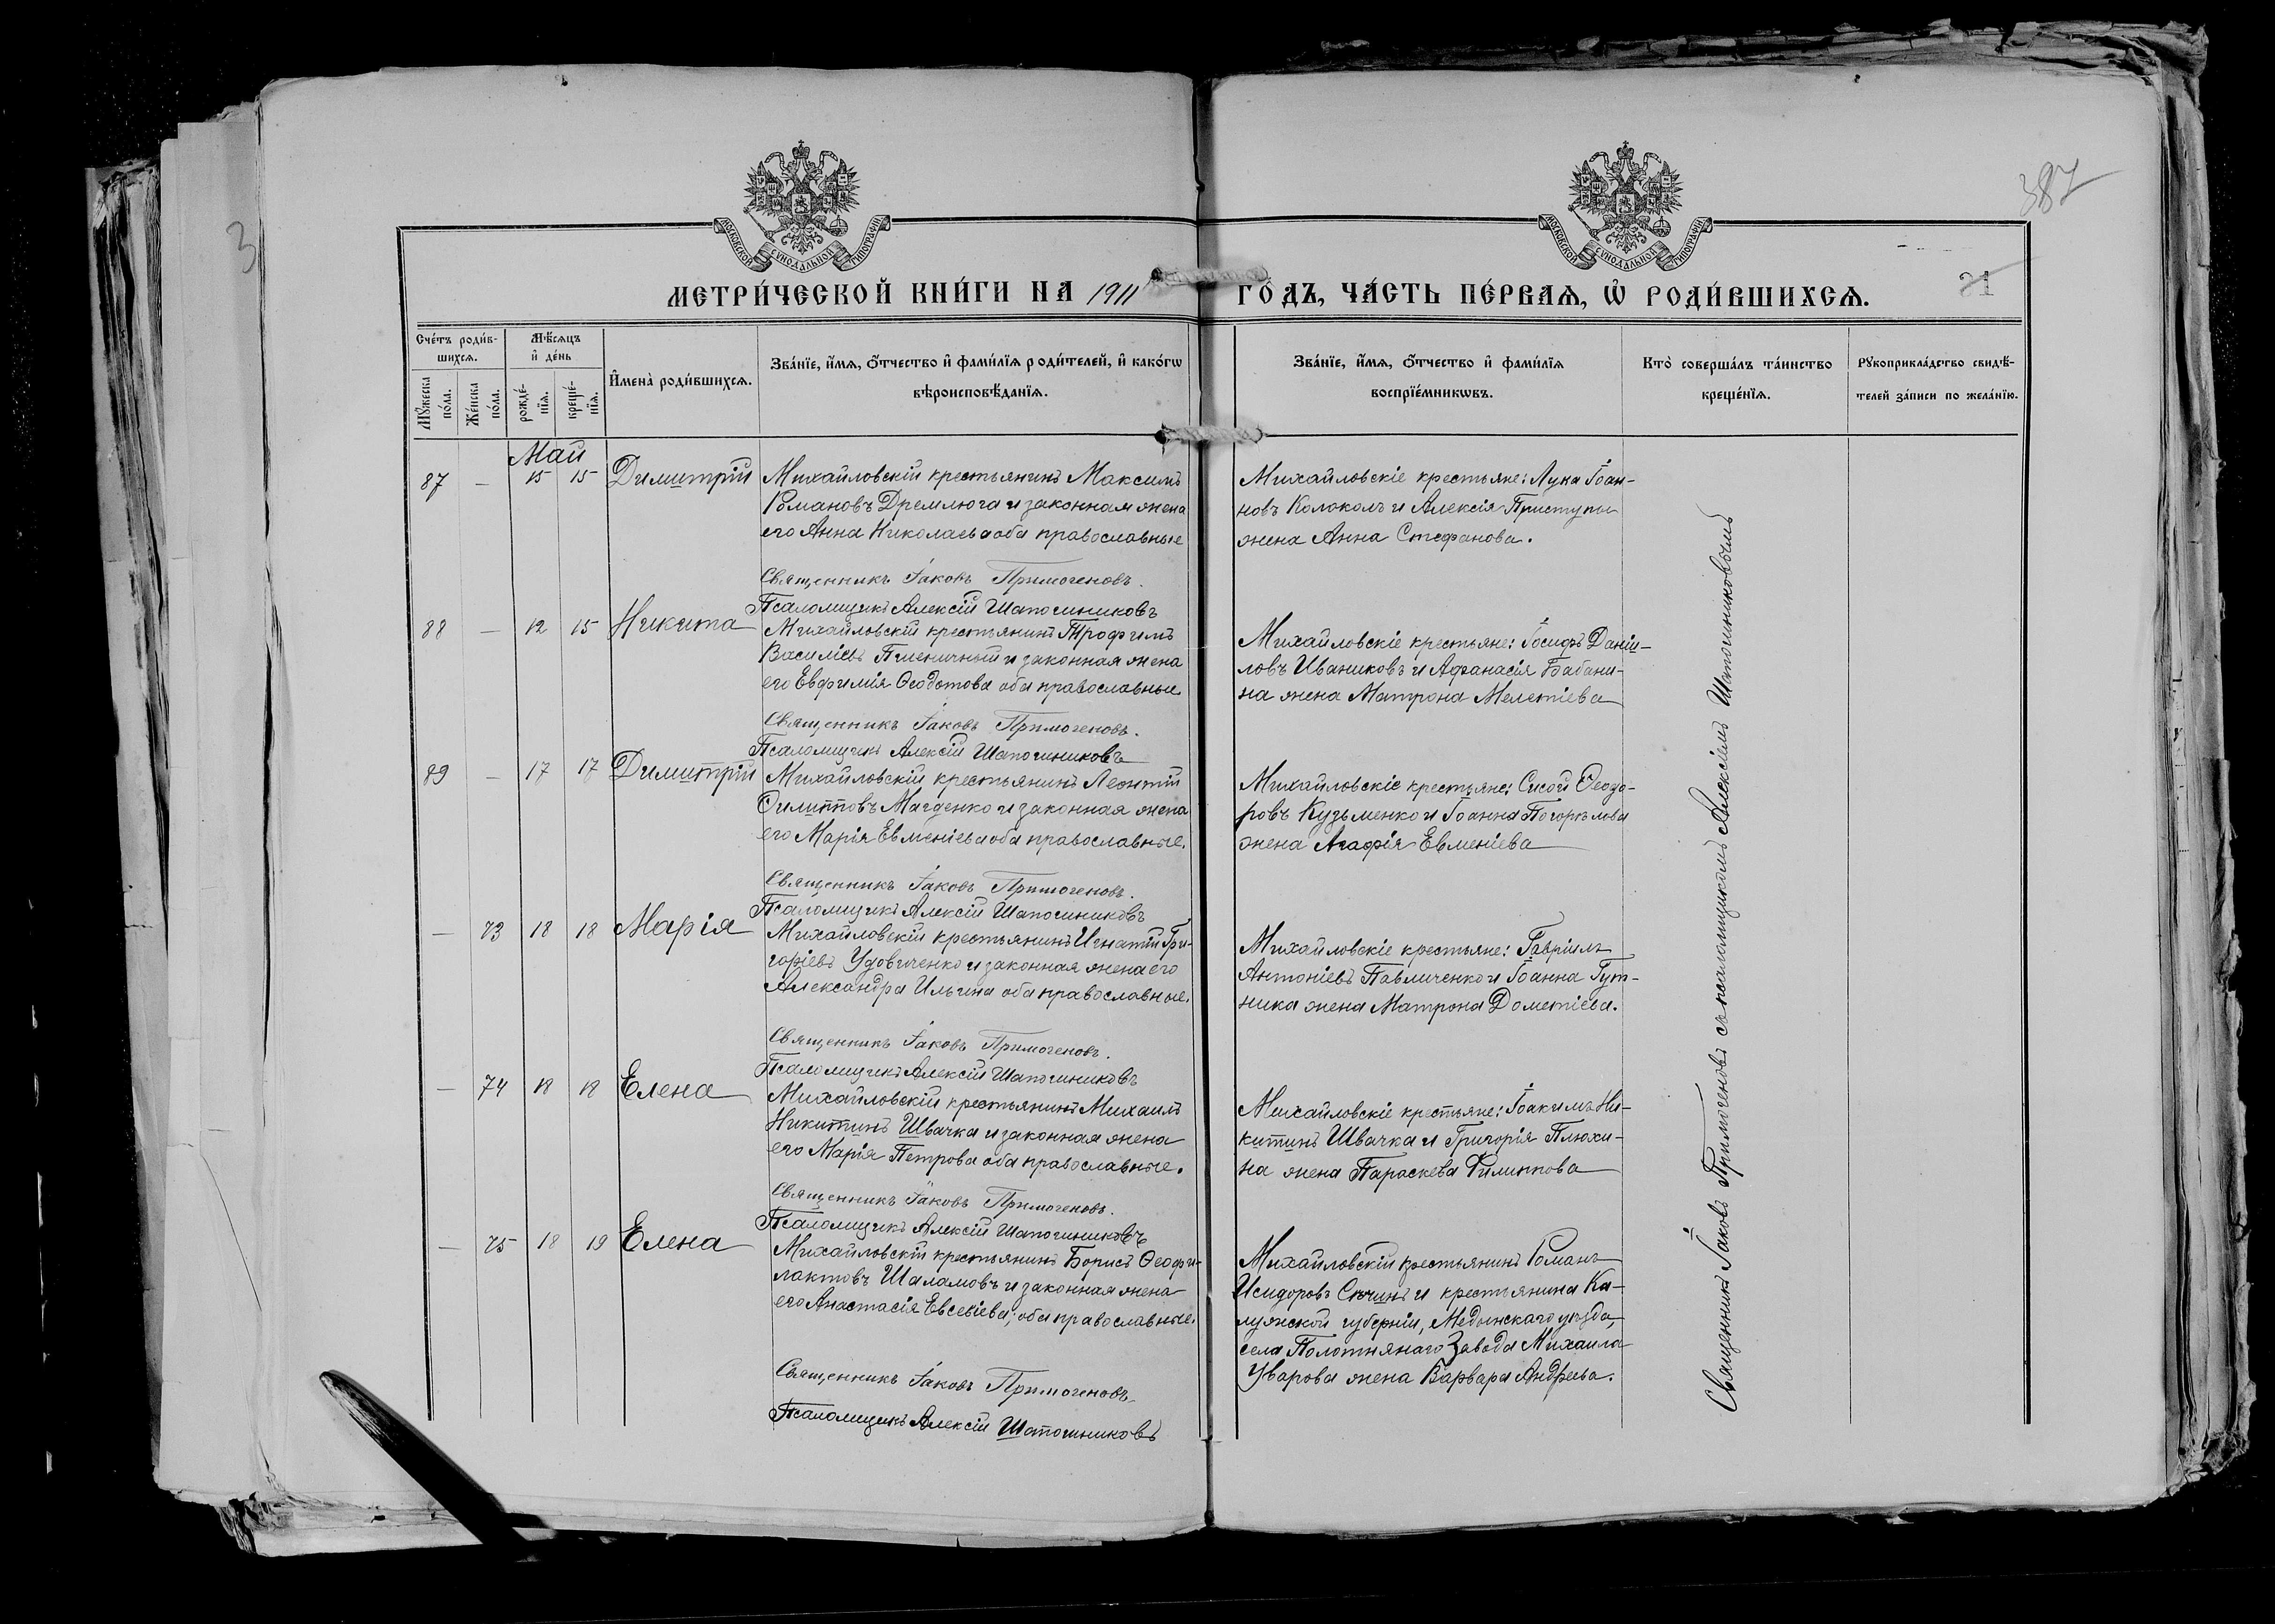 387
3
МОСКОВСКОЙ СУНОДАЛЬНОЙ ТИПОГРАФІИ
МОСКОВСКОЙ СУНОДАЛЬНОЙ ТИПОГРАФІИ
МЕТРИ́ЧЕСКОЙ КНИ́ГИ НА 1911 ГО́ДЪ, ЧА́СТЬ ПЕ́РВАЯ, Ѡ҆ РОДИ́ВШИХСЯ.
21
Сче́тъ роди́в-
шихся.
Мѣ́сяцъ
и҆ де́нь
Мꙋ́жеска
по́ла.
Же́нска
по́ла.
рожде́-
нїя.
креще́-
нїя.
И҆мена̀ роди́вшихся.
Зва́нїе, и҆́мя, ѻ҆́тчество и҆ фами́лїя роди́телей, и҆ како́гѡ
вѣроисповѣ́данїя.
Зва́нїе, и҆́мя, ѻ҆́тчество и҆ фами́лїя
воспрїе́мникѡвъ.
Кто̀ соверша́лъ та́инство
креще́нїя.
Рꙋкоприкла́дство свидѣ́-
телей за́писи по жела́нїю.
Май
87 — 15 15 Димитрій
Михайловскій крестьянинъ Максимъ
Романовъ Дремлюга и законная жена
его Анна Николаева оба православные
Священникъ Іаковъ Примогеновъ.
Псаломщикъ Алексій Шапошниковъ
Михайловскіе крестьяне: Лука Іоан-
новъ Колоколъ и Алексія Приступы
жена Анна Стефанова.
88 — 12 15 Никита
Михайловскій крестьянинъ Трофимъ
Василіевъ Пшеничный и законная жена
его Евфимія Ѳеодотова оба православные.
Священникъ Іаковъ Примогеновъ.
Псаломщикъ Алексій Шапошниковъ
Михайловскіе крестьяне: Іосифъ Даніи-
ловъ Иваниковъ и Афанасія Бабани-
на жена Матрона Мелетіева
89 — 17 17 Димитрій
Михайловскій крестьянинъ Леонтій
Филипповъ Магденко и законная жена
его Марія Евменіева оба православные.
Священникъ Іаковъ Примогеновъ.
Псаломщикъ Алексій Шапошниковъ
Михайловскіе крестьяне: Сисой Ѳеодо-
ровъ Кузьменко и Іоанна Погорѣлова
жена Агафія Евменіева
— 73 18 18 Марія
Михайловскій крестьянинъ Игнатій Гри-
горіевъ Удовиченко и законная жена его
Александра Ильина оба православные.
Священникъ Іаковъ Примогеновъ.
Псаломщикъ Алексій Шапошниковъ
Михайловскіе крестьяне: Гавріилъ
Антоніевъ Павличенко и Іоанна Гут-
ника жена Матрона Дометіева.
— 74 18 18 Елена
Михайловскій крестьянинъ Михаилъ
Никитинъ Швачка и законная жена
его Марія Петрова оба православные.
Священникъ Іаковъ Примогеновъ.
Псаломщикъ Алексій Шапошниковъ
Михайловскіе крестьяне: Іоакимъ Ни-
китинъ Швачка и Григорія Плюхи-
на жена Параскева Филиппова
— 75 18 19 Елена
Михайловскій крестьянинъ Борисъ Ѳеофи-
лактовъ Шаламовъ и законная жена
его Анастасія Евсевіева; оба православные.
Священникъ Іаковъ Примогеновъ
Псаломщикъ Алексій Шапошниковъ
Михайловскій крестьянинъ Романъ
Исидоровъ Сѣчинъ и крестьянина Ка-
лужской губерніи, Медынскаго уѣзда,
села Полотнянаго Завода Михаила
Уварова жена Варвара Андреева.
Священникъ Іаковъ Примогеновъ съ псаломщикомъ Алексіемъ Шапошниковымъ